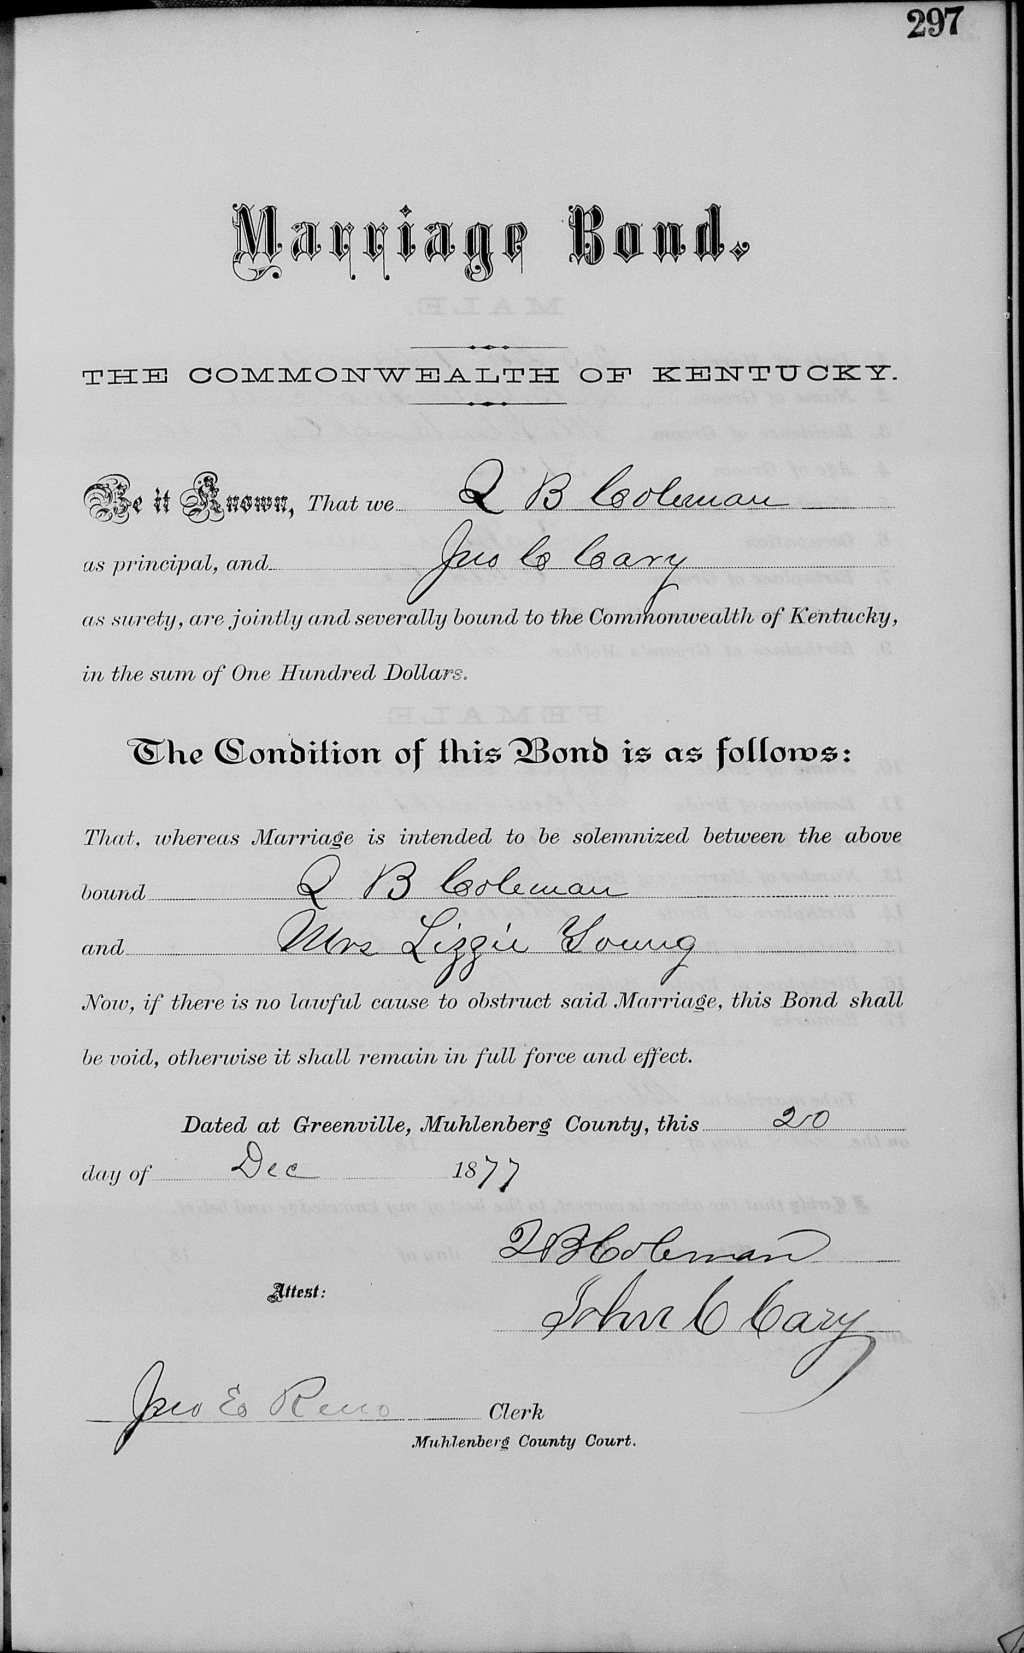 297
Marriage Bond.
THE COMMONWEALTH OF KENTUCKY.
Be it Known, That we Q B Coleman
as principal, and Jno C Cary
as surety, are jointly and severally bound to the Commonwealth of Kentucky,
in the sum of One Hundred Dollars.
The Condition of this Bond is as follows:
That, whereas Marriage is intended to be solemnized between the above
bound Q B Coleman
and Mrs Lizzie Young
Now, if there is no lawful cause to obstruct said Marriage, this Bond shall
be void, otherwise it shall remain in full force and effect.
Dated at Greenville, Muhlenberg County, this 20
day of Dec 1877
Q B Coleman
Attest:
John C Cary
Jno E Reno Clerk
Muhlenberg County Court.